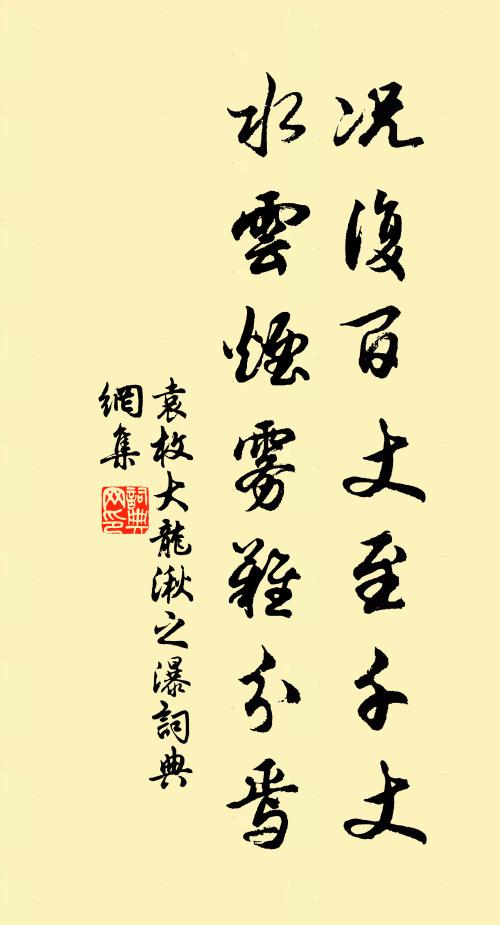 况復百丈至千丈
水雲煙霧難分焉
袁枚大龍湫之瀑詞典
網集
詞典网印